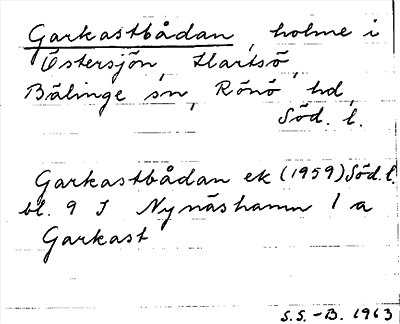 Garkastbådan, holme i
Östersjön, Hartsö,
Bälinge sn, Rönö hd,
Söd. l.
Garkastbådan ek (1959) Söd. l.
bl. 9 J Nynäshamn 1 a
Garkast
S.S.-B. 1963